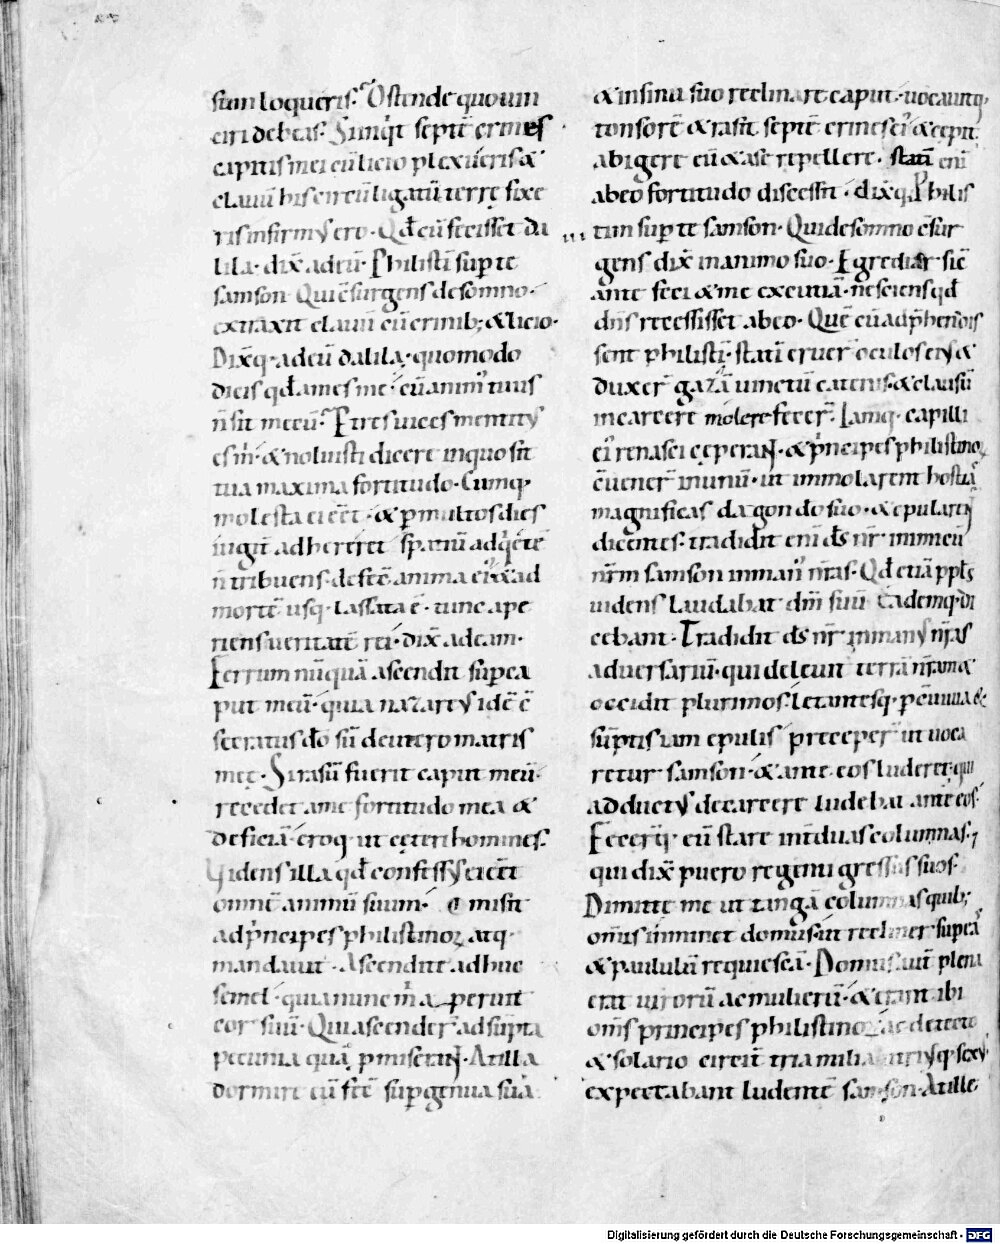 sum loqueris. Ostende quo uin
ciri debeas. Si inq̄t septē crines
capitis mei cū licio plexueris &
clauū his circūligatū terrę fixe
ris infirmus ero. Qd̄ cū fecisset da
lila. dix̄ ad eū. Philistīi sup te
samson. Qui c̄surgens de somno.
extraxit clauū cū crinib; & licio.
Dixq; ad eū dalila. quomodo
dicis qd̄ ames me. cū animꝰ tuus
n̄ sit mecū. Per tres uices mentitus
es m̄. & noluisti dicere in quo sit
tua maxima fortitudo. Cumq;
molesta ei eēt. & p multos dies
iugit̄ adhereret spatiū ad q̇etē
n̄ tribuens. defēc̄ anima eiꝰ & ad
mortē usq; lassata ē. tunc ape
riens ueritatē rei. dix̄ ad eam.
Ferrum nūquā ascendit sup ca
put meū. quia nazareus id ē
secratus dō sū de utero matris
meę. Si rasū fuerit caput meū.
recedet a me fortitudo mea &
deficiā. eroq; ut ceteri homines.
Uidens illa qd̄ confessus ei eēt
omnē animū suum. misit
ad pͥncipes philistinoꝝ atq;
mandauit. Ascendite adhuc
semel. quia nunc m̄ aperuit
cor suū. Qui ascender̄ adsūpta
pecunia quā pmiserant. At illa
dormire eū fec̄ sup genua sua
& in sinu suo reclinare caput. uocauitq;
tonsorē & rasit septē crines eiꝰ & cepit
abigere eū & a se repellere. statī eni
ab eo fortitudo discessit. dixq; Philis
tiim sup te samson. Qui de somno c̄sur
gens dix̄ in animo suo. Egrediar sic
ante feci & me excutiā. nesciens qd̄
dn̄s recessisset ab eo. Quē cū adp̄hendis
sent philistīi. statī eruer̄ oculos eius &
duxer̄ gazā uinctū catenis. & clausū
in carcere molere fecer̄. Iamq; capilli
eiꝰ renasci ceperant. & pͥncipes philistinoꝝ
c̄uener̄ in unū. ut immolarent hostias
magnificas dagon dō suo. & epularent
dicentes. tradidit eni ds̄ nr̄ inimicū
nr̄m samson in manꝰ nr̄as. Qd̄ etiā ppl̄s
uidens laudabat dm̄ suū. eademq; di
cebant. Tradidit ds̄ nr̄ in manus nr̄as
aduersariū. qui deleuit terrā nr̄am &
occidit plurimos. Letantesq; p cuuiuia
sūptis iam epulis. p̄ceper̄ ut uoca
retur samson. & ante eos luderet. qui
adductus de carcere ludebat ante eos.
Fecer̄q; eū stare int̄ duas columnas.
qui dix̄ puero regenti gressus suos.
Dimitte me ut tangā columnas quib;
om̄is imminet domus. ut recliner sup eas
& paululū requiescā. Domus aut̄ plena
erat uirorū ac mulierū. & erant ibi
om̄s principes philistinoꝝ. ac de tecto
& solario circit̄ tria milia utriusq; sexus
expectabant ludentē samson. At ille
Digitalisierung gefördert durch die Deutsche Forschungsgemeinschaft - DFG